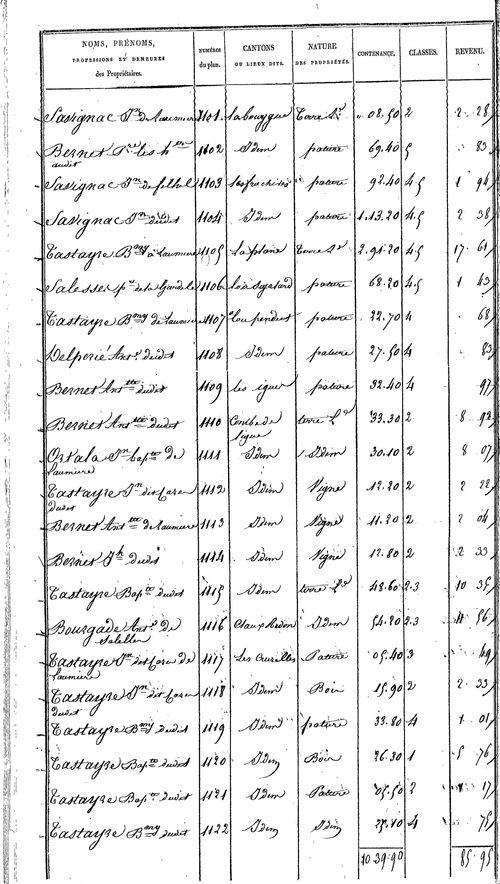 NOMS, PRÉNOMS, PROFESSIONS ET DEMEURES des Propriétaires. NUMÉROS du plan. CANTONS OU LIEUX DITS. NATURE DES PROPRIÉTÉS. CONTENANCE. CLASSES. REVENU.
Savignac Jn de Laumiere 1101 labouygue Terre 08.50 2 2 28
Bernet les hers 1102 Idem pature 69.40 5 83
audit
Savignac Jn de 1103 pature 92.40 4.5 1 94
Savignac Jn dudit 1104 Idem pature 1.13.20 4.5 2 38
Castayre Bmy à Laumiere 1105 la plaine Terre 2.91.20 4.5 17 61
Salesses de la 1106 pature 68.20 4.5 1 43
Castayre Bmy de Laumiere 1107 lou pendut pature 22.70 4 68
Delperié Ant. dudit 1108 Idem pature 27.50 4 83
Bernet Anttte dudit 1109 les iguer pature 32.40 4 97
Bernet Anttte dudit 1110 Combe de terre 33.30 2 8 92
Ortala Jn Bapte de 1111 Idem Idem 30.10 2 8 07
Laumiere
Castayre Jn dit 1112 Idem Vigne 12.20 2 2 22
dudit
Bernet Anttte de Laumiere 1113 Idem Vigne 11.20 2 2 04
Bernet Jh dudit 1114 Idem Vigne 12.80 2 2 33
Castayre Bapte dudit 1115 Idem terre 48.60 2.3 10 35
Bourgade Ant. de 1116 Claux Redon Idem 54.20 2.3 11 56
Castayre Jn dit de 1117 Les Pature 05.40 3 49
Laumiere
Castayre Jn dit 1118 Idem Bois 15.90 2 2 33
dudit
Castayre Bmy dudit 1119 Idem pature 33.80 4 1 01
Castayre Bapte dudit 1120 Idem Bois 26.30 1 5 76
Castayre Bapte dudit 1121 Idem Pature 05.50 2 1 17
Castayre Bmy dudit 1122 Idem Idem 25.10 4 75
10.39.90 85 95